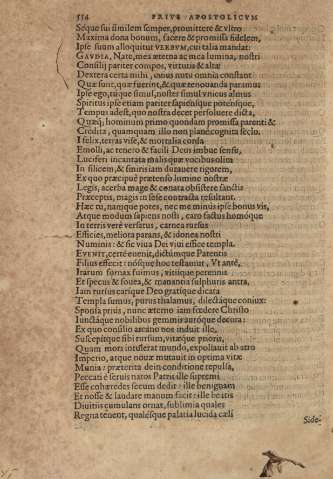 554 PRIVS APOSTOLICVM
Seque sui similem semper, promittere & vltro
Maxima dona bonum, facere & promissa fidelem,
Ipse suum alloquitur VERBUM, cui talia mandat:
GAVDIA, Nate, mea æterna ac mea lumina, nostri
Consilij pariter compos, virtutis & altæ
Dextera certa mihi, cuius nutu omnia constant
Quæ sunt, quæ fuerint, & quæ renouanda paramus
Ipse ego, tuque simul, noster simul vnicus almus
Spiritus ipse etiam pariter sapiensque potensque,
Tempus adest, quo nostra decet persoluere dicta,
Quæq; hominum primo quondam promissa parenti &
Credita, quamquam illo non plane cognita seclo.
I felix, terras vise, & mortalia corda
Emolli, ac tenero & facili Deus imbue sensu,
Luciferi incantata malis quæ vocibus olim
In silicem, & smirim iam durauere rigorem,
Ex quo præcipuè prætenso lumine nostræ
Legis, acerba mage & conata obsistere sanctis
Præceptis, magis in sese contracta resultant.
Hæc tu, namque potes, nec me minus ipse bonus vis,
Atque modum sapiens nosti, caro factus homóque
In terris verè versatus, carnea rursus
Efficies, meliora parans, & idonea nostri
Numinis: & sic viua Dei viui efficetempla.
EVENIT, certè euenit, dictumque Parentis
Filius effecit: nosque hoc testamur. Vt antè,
Irarum fornax fuimus, vitiique perennia
Et specus & fouea, & manantia sulphuris antra,
Iam rursus carique Deo gratique dicata
Templa sumus, purus thalamus, dilectáque coniux:
Sponsa prius, nunc æterno iam fœdere Christo
Iunctáque nobilibus gemmis auróque decora:
Ex quo consilio arcano nos induit illo,
Suscepitque sibi rursum, vitæque prioris,
Quam mors intulerat mundo, expoliauit ab atro
Imperio, atque nouæ mutauit in optima vitæ
Munia: præterita dein conditione repulsa,
Peccati è seruis natos Patris ille supremi
Esse cohæredes secum dedit: ille benignum
Et nosse & laudare manum facit: ille beatis
Diuitiis cumulans ornat, sublimia quales
Regna tenent, qualésque palatia lucida cæli
Side-